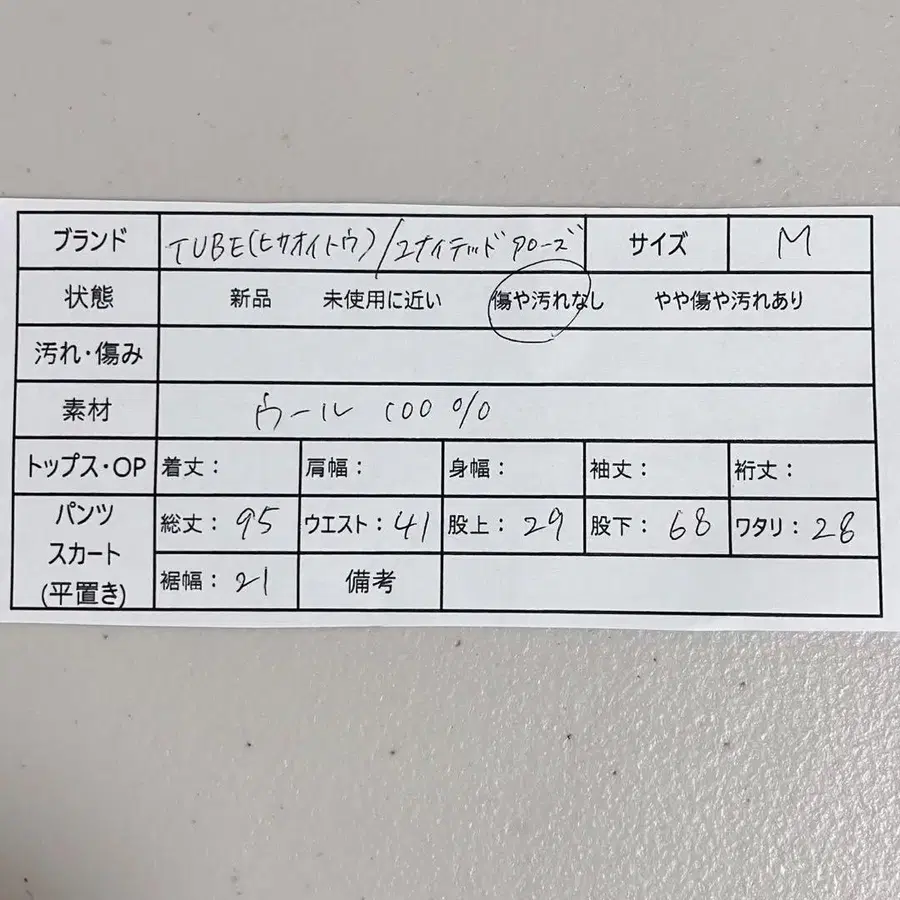 ブランド TUBE(ヒサオイトウ)/ユナイテッドアローズ サイズ M
状態 新品 未使用に近い 傷や汚れなし やや傷や汚れあり
汚れ・傷み
素材 ウール 100%
トップス・OP 着丈: 肩幅: 身幅: 袖丈: 裄丈:
パンツ 総丈: 95 ウエスト: 41 股上: 29 股下: 68 ワタリ: 28
スカート
(平置き) 裾幅: 21 備考